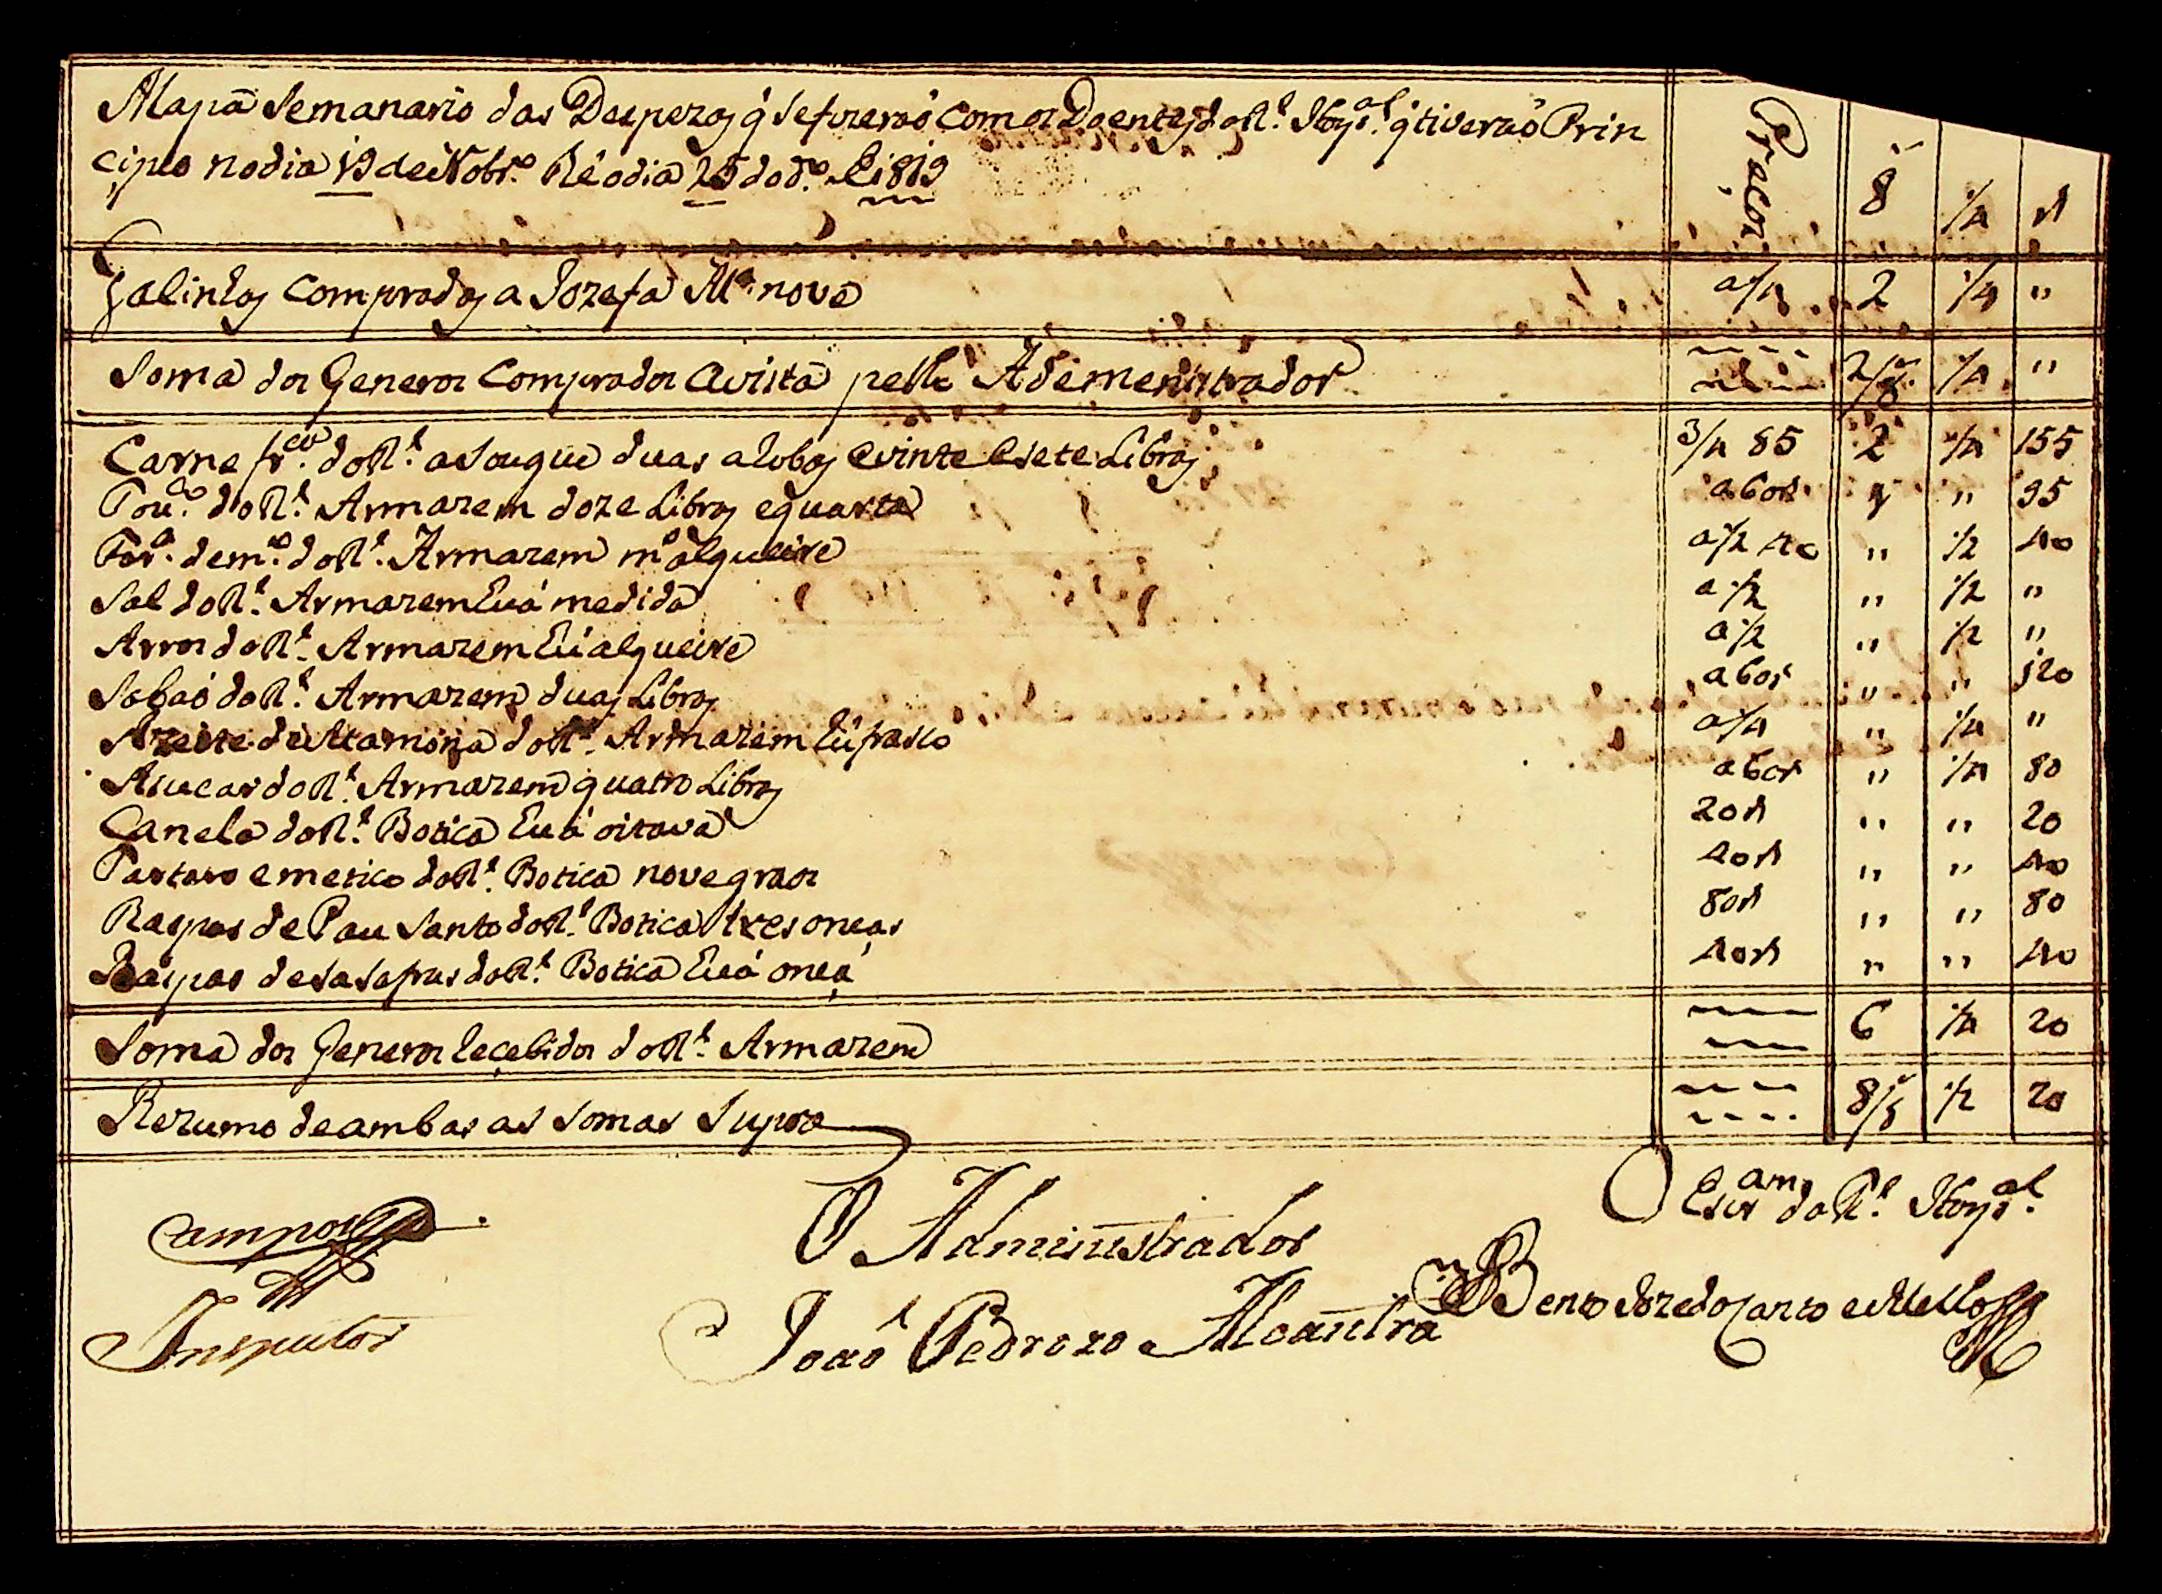 Mapa Semanario das Despezas q̃ se fizeraõ com os Doentes do R.l Hosp.al q̃ tiveraõ Prin
cipio no dia 19 de Novbr.o the o dia 25 do d.o E1819
Preços 8.as 1/4 rs
Galinhas compradas a Jozefa M.a nove a 1/4 2 1/4 "
Soma dos Generos comprados avista pello Ademenistrador 2/8.as 1/4 "
Carne fr.ca do R.l asougue duas arobas e vinte e sete Libras 3/4 85 2 1/4 155
Tou.co do R.l Armazem doze Libras e quarta a 60rs " 95
Far.a de m.o do R.l Armazem m.o alqueire a 1/2 40 " 1/2 40
Sal do R.l Armazem huá medida a 1/2 " 1/2 "
Arros do R.l Armazem hú alqueire a 1/2 " 1/2 "
Sabaõ do R.l Armazem duas Libras a 60rs " " 120
Azeite de Mamona do R.l Armazem hú frasco a 1/4 " 1/4 "
Asucar do R.l Armazem quatro Libras a 60rs " 1/4 80
Canela do R.l Botica huá oitava 20rs " " 20
Tartaro emetico do R.l Botica nove graos 40rs " " 40
Raspas de Pau Santo do R.l Botica tres onças 80rs " " 80
Raspas de sasafras do R.l Botica huá onça 40rs " " 40
Soma dos Generos recebidos do R.l Armazem 6 1/4 20
Rezumo de ambas as somas Supra 8/8.as 1/2 20
Campos
Inspector
O Administrador
Joaõ Pedrozo Alcantra
O Escr.am do R.l Hosp.al
Bento Joze do Canto e Mello